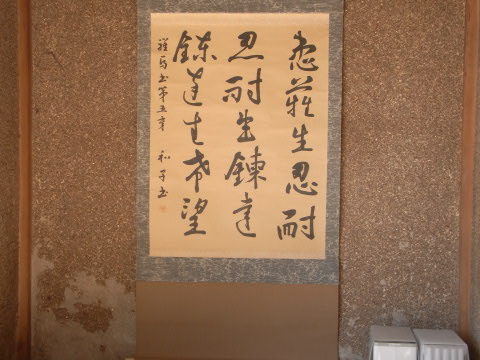 患難生忍耐
忍耐生錬達
錬達生希望
羅馬書第五章 和子書